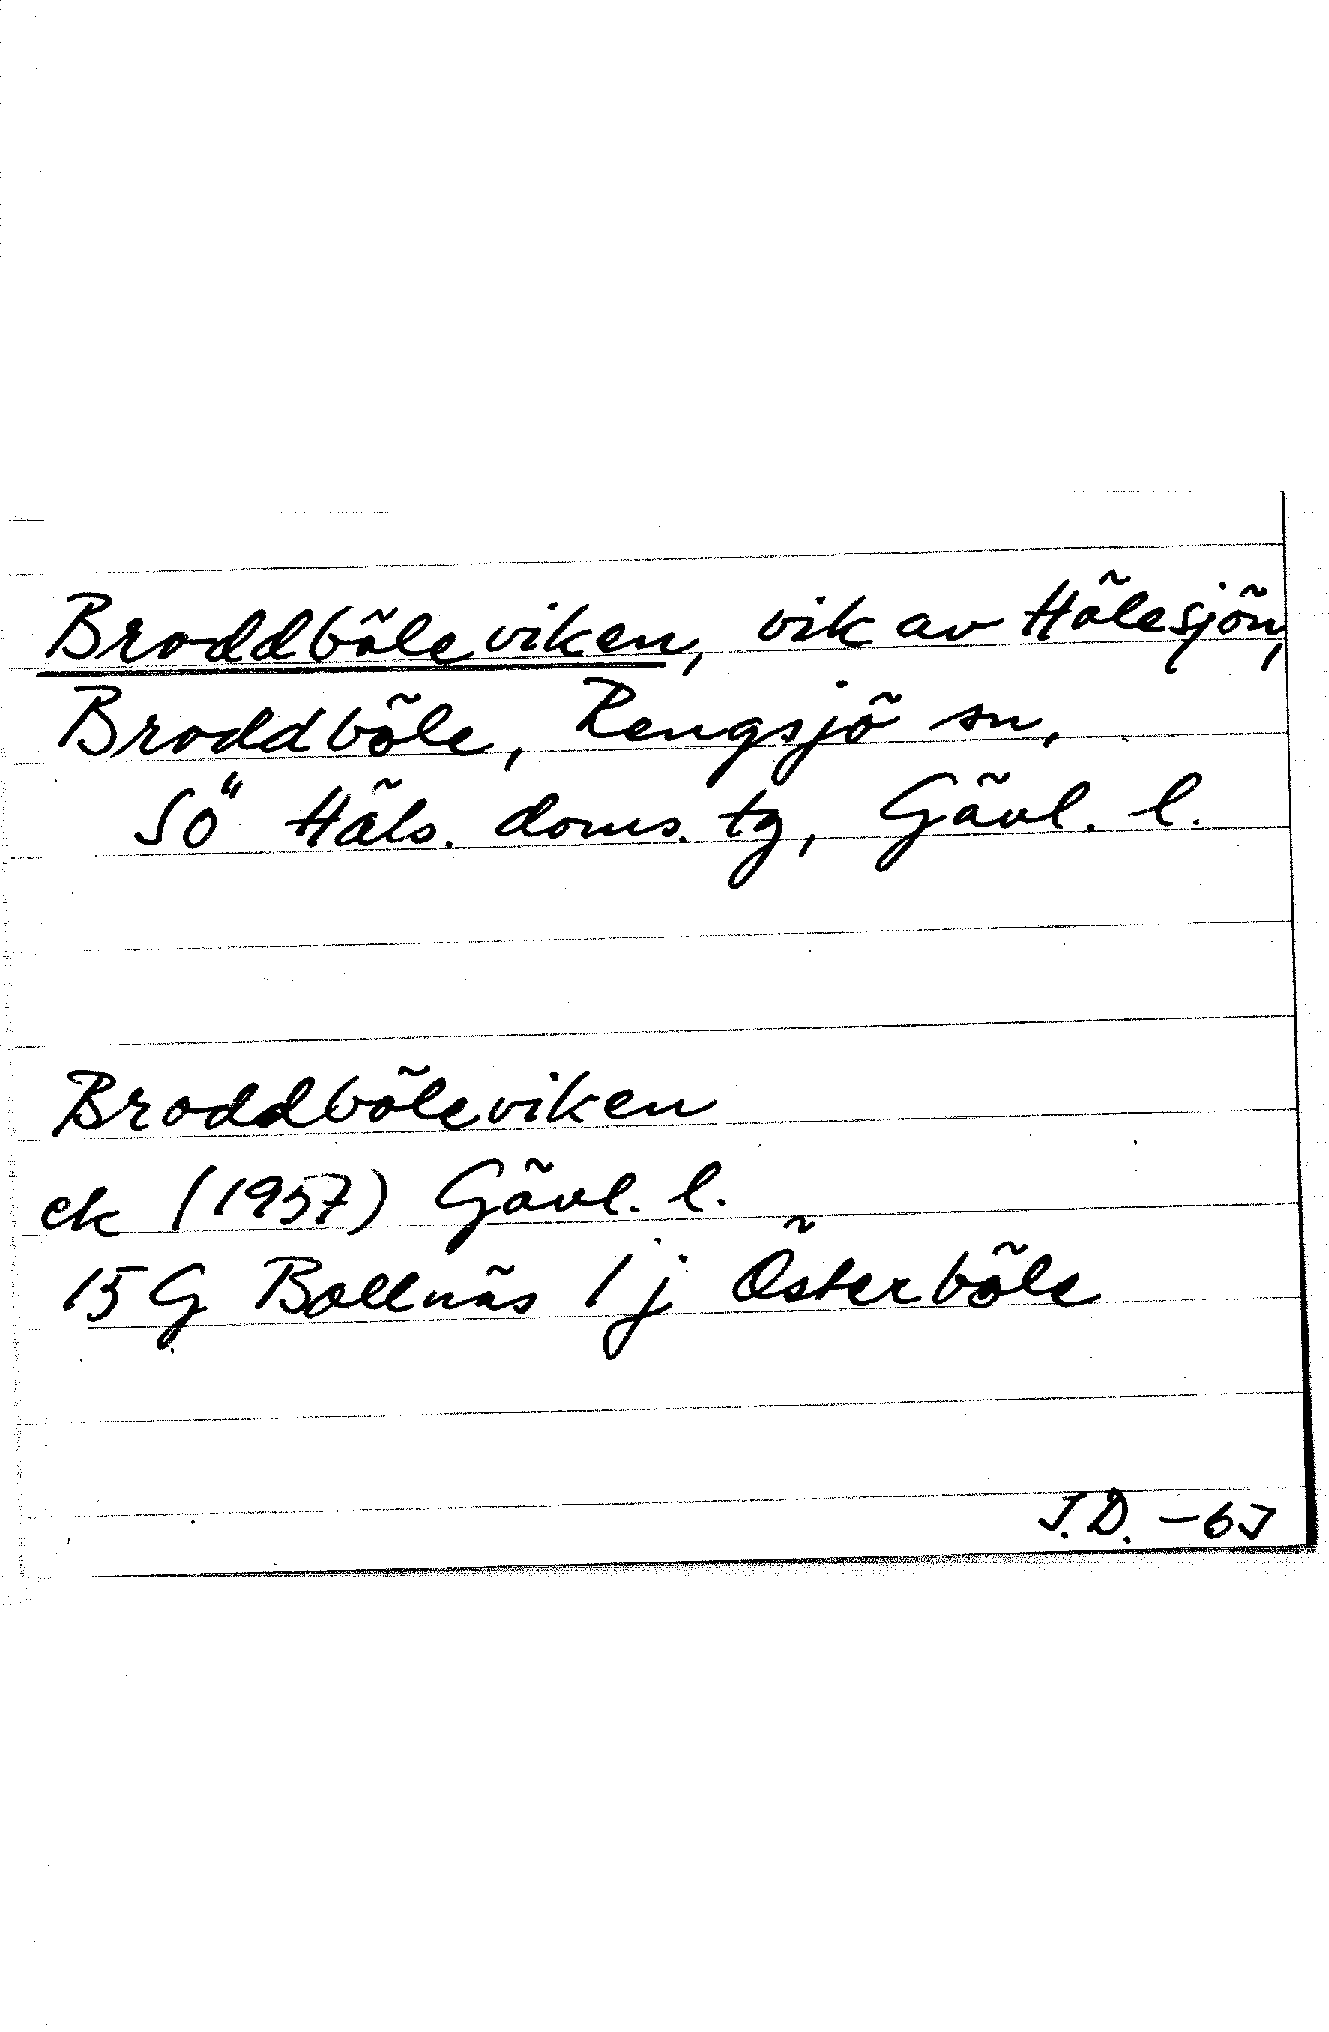 Broddböleviken, vik av Hölesjön,
Broddböle, Rengsjö sn,
SÖ Häls. doms. tg, Gävl. l.
Broddböleviken
ek (1957) Gävl. l.
15 G Bollnäs 1 j Österböle
J.D. -63